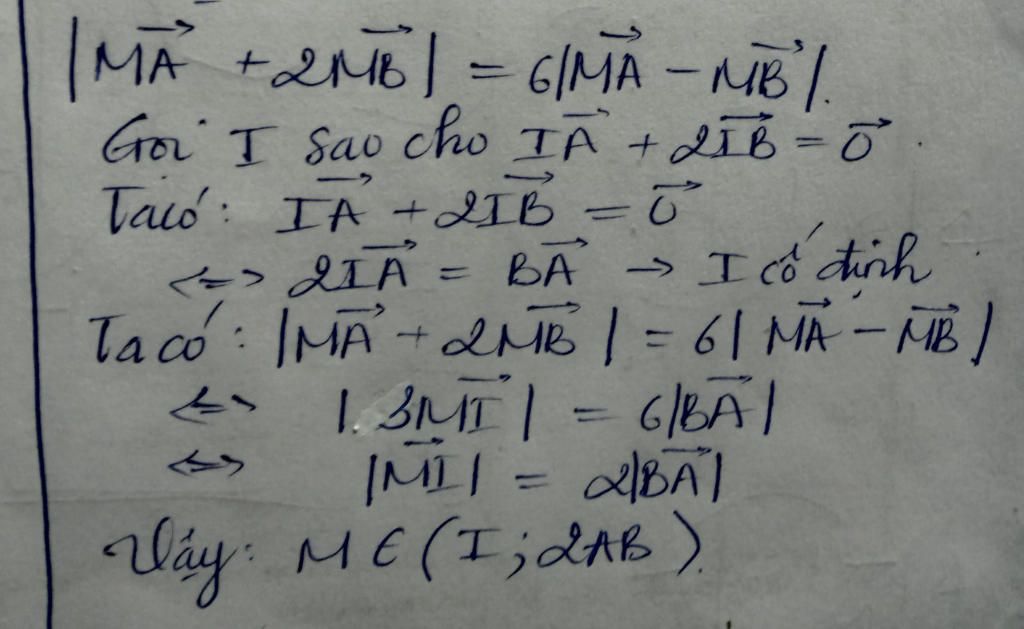 |MA⃗ + 2MB⃗| = 6|MA⃗ - MB⃗|.
Gọi I sao cho IA⃗ + 2IB⃗ = 0⃗.
Ta có: IA⃗ + 2IB⃗ = 0⃗
<=> 2IA⃗ = BA⃗ → I cố định
Ta có: |MA⃗ + 2MB⃗| = 6|MA⃗ - MB⃗|
<=> |3MI⃗| = 6|BA⃗|
<=> |MI⃗| = 2|BA⃗|
Vậy: M ∈ (I; 2AB).